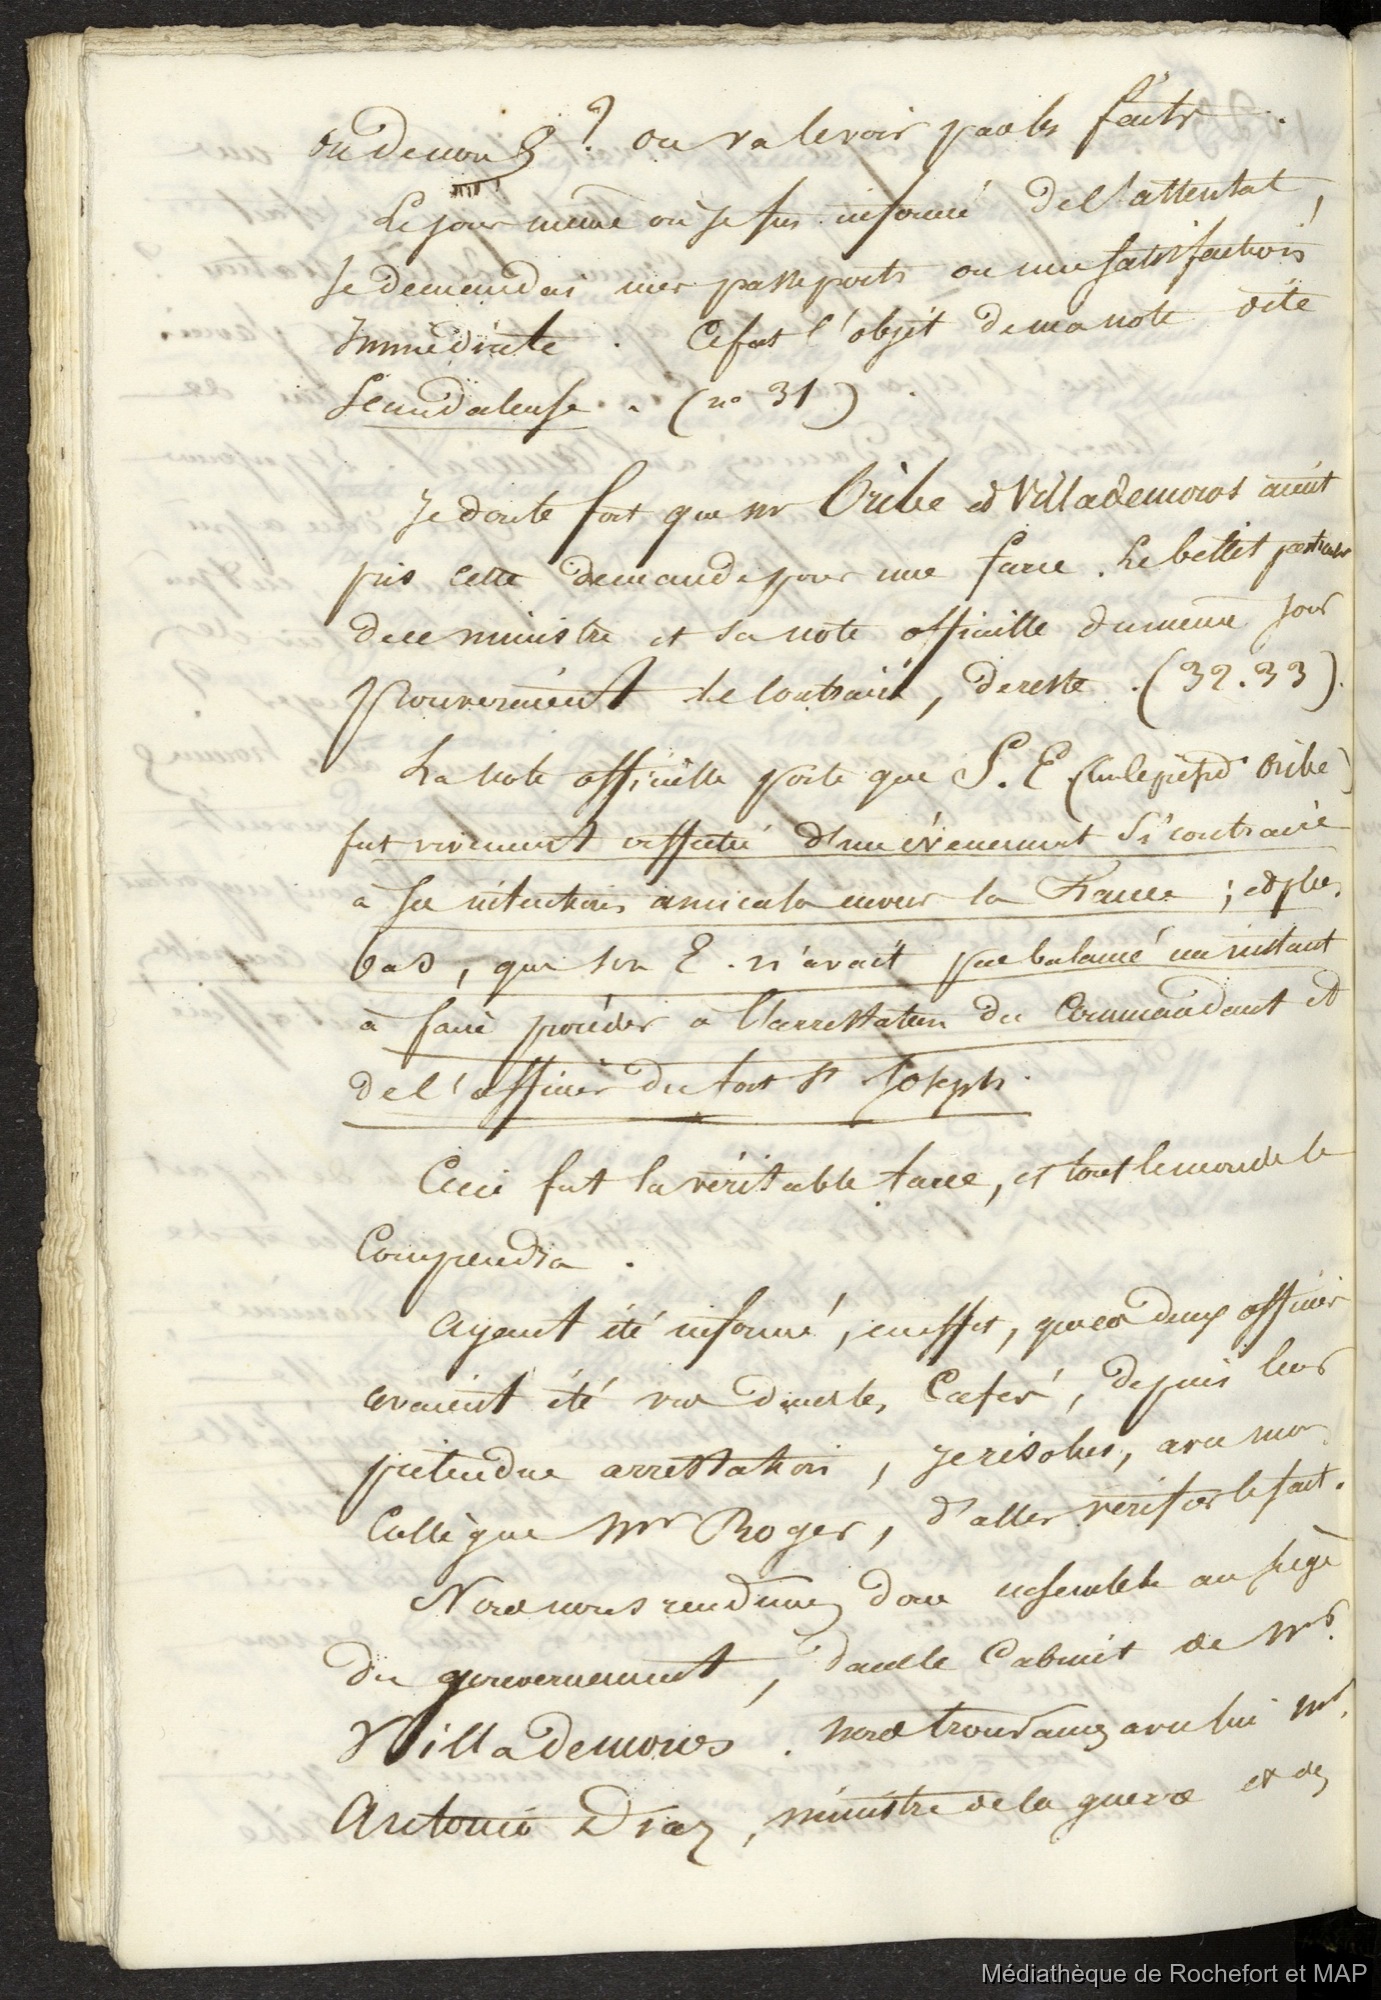 ou de nous ? on va le voir par les faits.
Le jour même où je fus informé de l'attentat,
Je demandai mes passeports ou une satisfaction
Immédiate. Ce fut l'objet de ma note dite
Scandaleuse. (no 31)
Je doute fort que mr Oribe et Villademoros aient
pris cette demande pour une farce. Le billet particulier
de ce ministre et sa note officielle du même jour
prouveraient le contraire, de reste. (32.33).
La note officielle porte que S. E. ( Oribe)
fut vivement affecté d'un évènement si contraire
à ses intentions amicales envers la France ; et plus
bas, que son E. n'avait pas balancé un instant
à faire procéder à l'arrestation du Commandant et
de l'officier du fort St Joseph.
Ceci fut la véritable farce, et tout le monde le
Comprendra.
Ayant été informé, en effet, que ces deux officiers
avaient été vus dans les Cafés, depuis leur
prétendue arrestation, je résolus, avec mon
Collègue Mr Roger, d'aller vérifier le fait.
Nous nous rendîmes donc ensemble au siège
du gouvernement, dans le Cabinet de Mr.
Villademoros. nous trouvâmes avec lui Mr.
Antonio Diaz, ministre de la guerre et des
Médiathèque de Rochefort et MAP